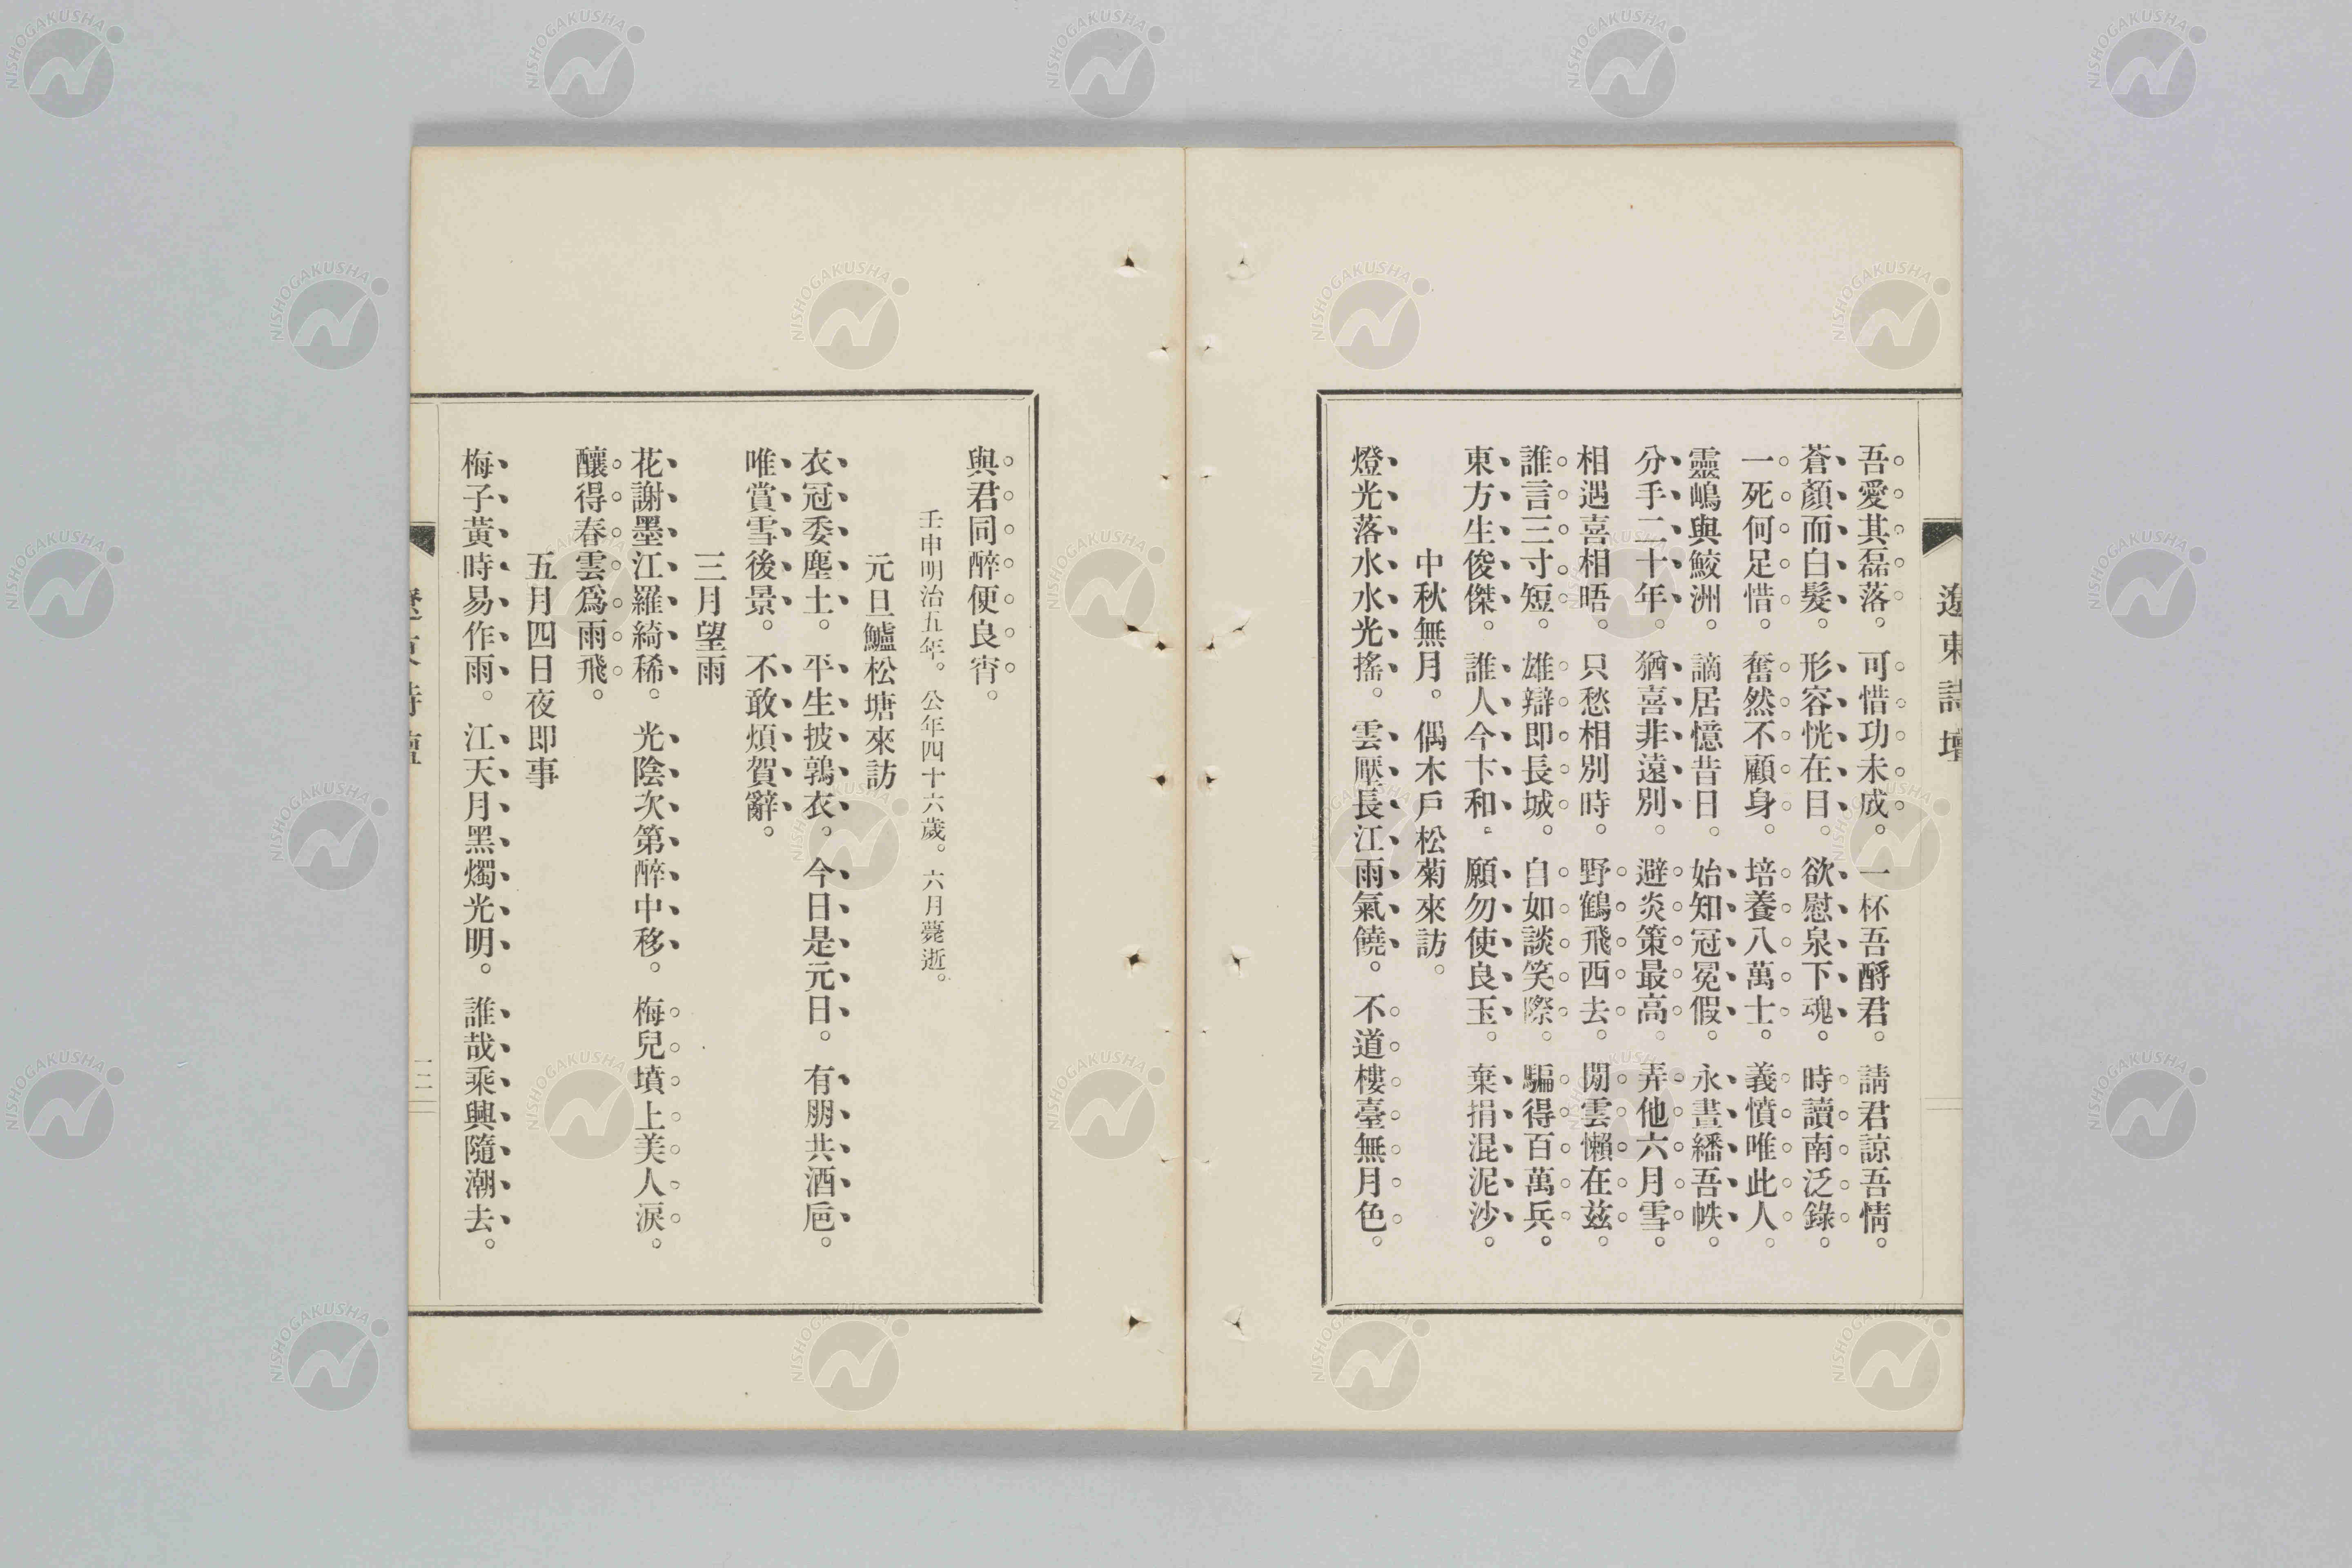 遼東詩壇
吾愛其磊落。可惜功未成。一杯吾酹君。請君諒吾情。
蒼顏而白髮。形容恍在目。欲慰泉下魂。時讀南泛錄。
一死何足惜。奮然不顧身。培養八萬士。義憤唯此人。
靈嶋與鮫洲。謫居憶昔日。始知冠冕假。永晝繙吾帙。
分手二十年。猶喜非遠別。避炎策最高。弄他六月雪。
相遇喜相晤。只愁相別時。野鶴飛西去。閒雲懶在茲。
誰言三寸短。雄辯即長城。自如談笑際。騙得百萬兵。
東方生俊傑。誰人今卞和。願勿使良玉。棄捐混泥沙。
中秋無月。偶木戶松菊來訪。
燈光落水水光搖。雲壓長江雨氣饒。不道樓臺無月色。
與君同醉便良宵。
壬申明治五年。公年四十六歲。六月薨逝。
元旦鱸松塘來訪
衣冠委塵土。平生披鶉衣。今日是元日。有朋共酒巵。
唯賞雪後景。不敢煩賀辭。
三月望雨
花謝墨江羅綺稀。光陰次第醉中移。梅兒墳上美人淚。
釀得春雲爲雨飛。
五月四日夜即事
梅子黃時易作雨。江天月黑燭光明。誰哉乘興隨潮去。
遼東詩壇
NISHOGAKUSHA